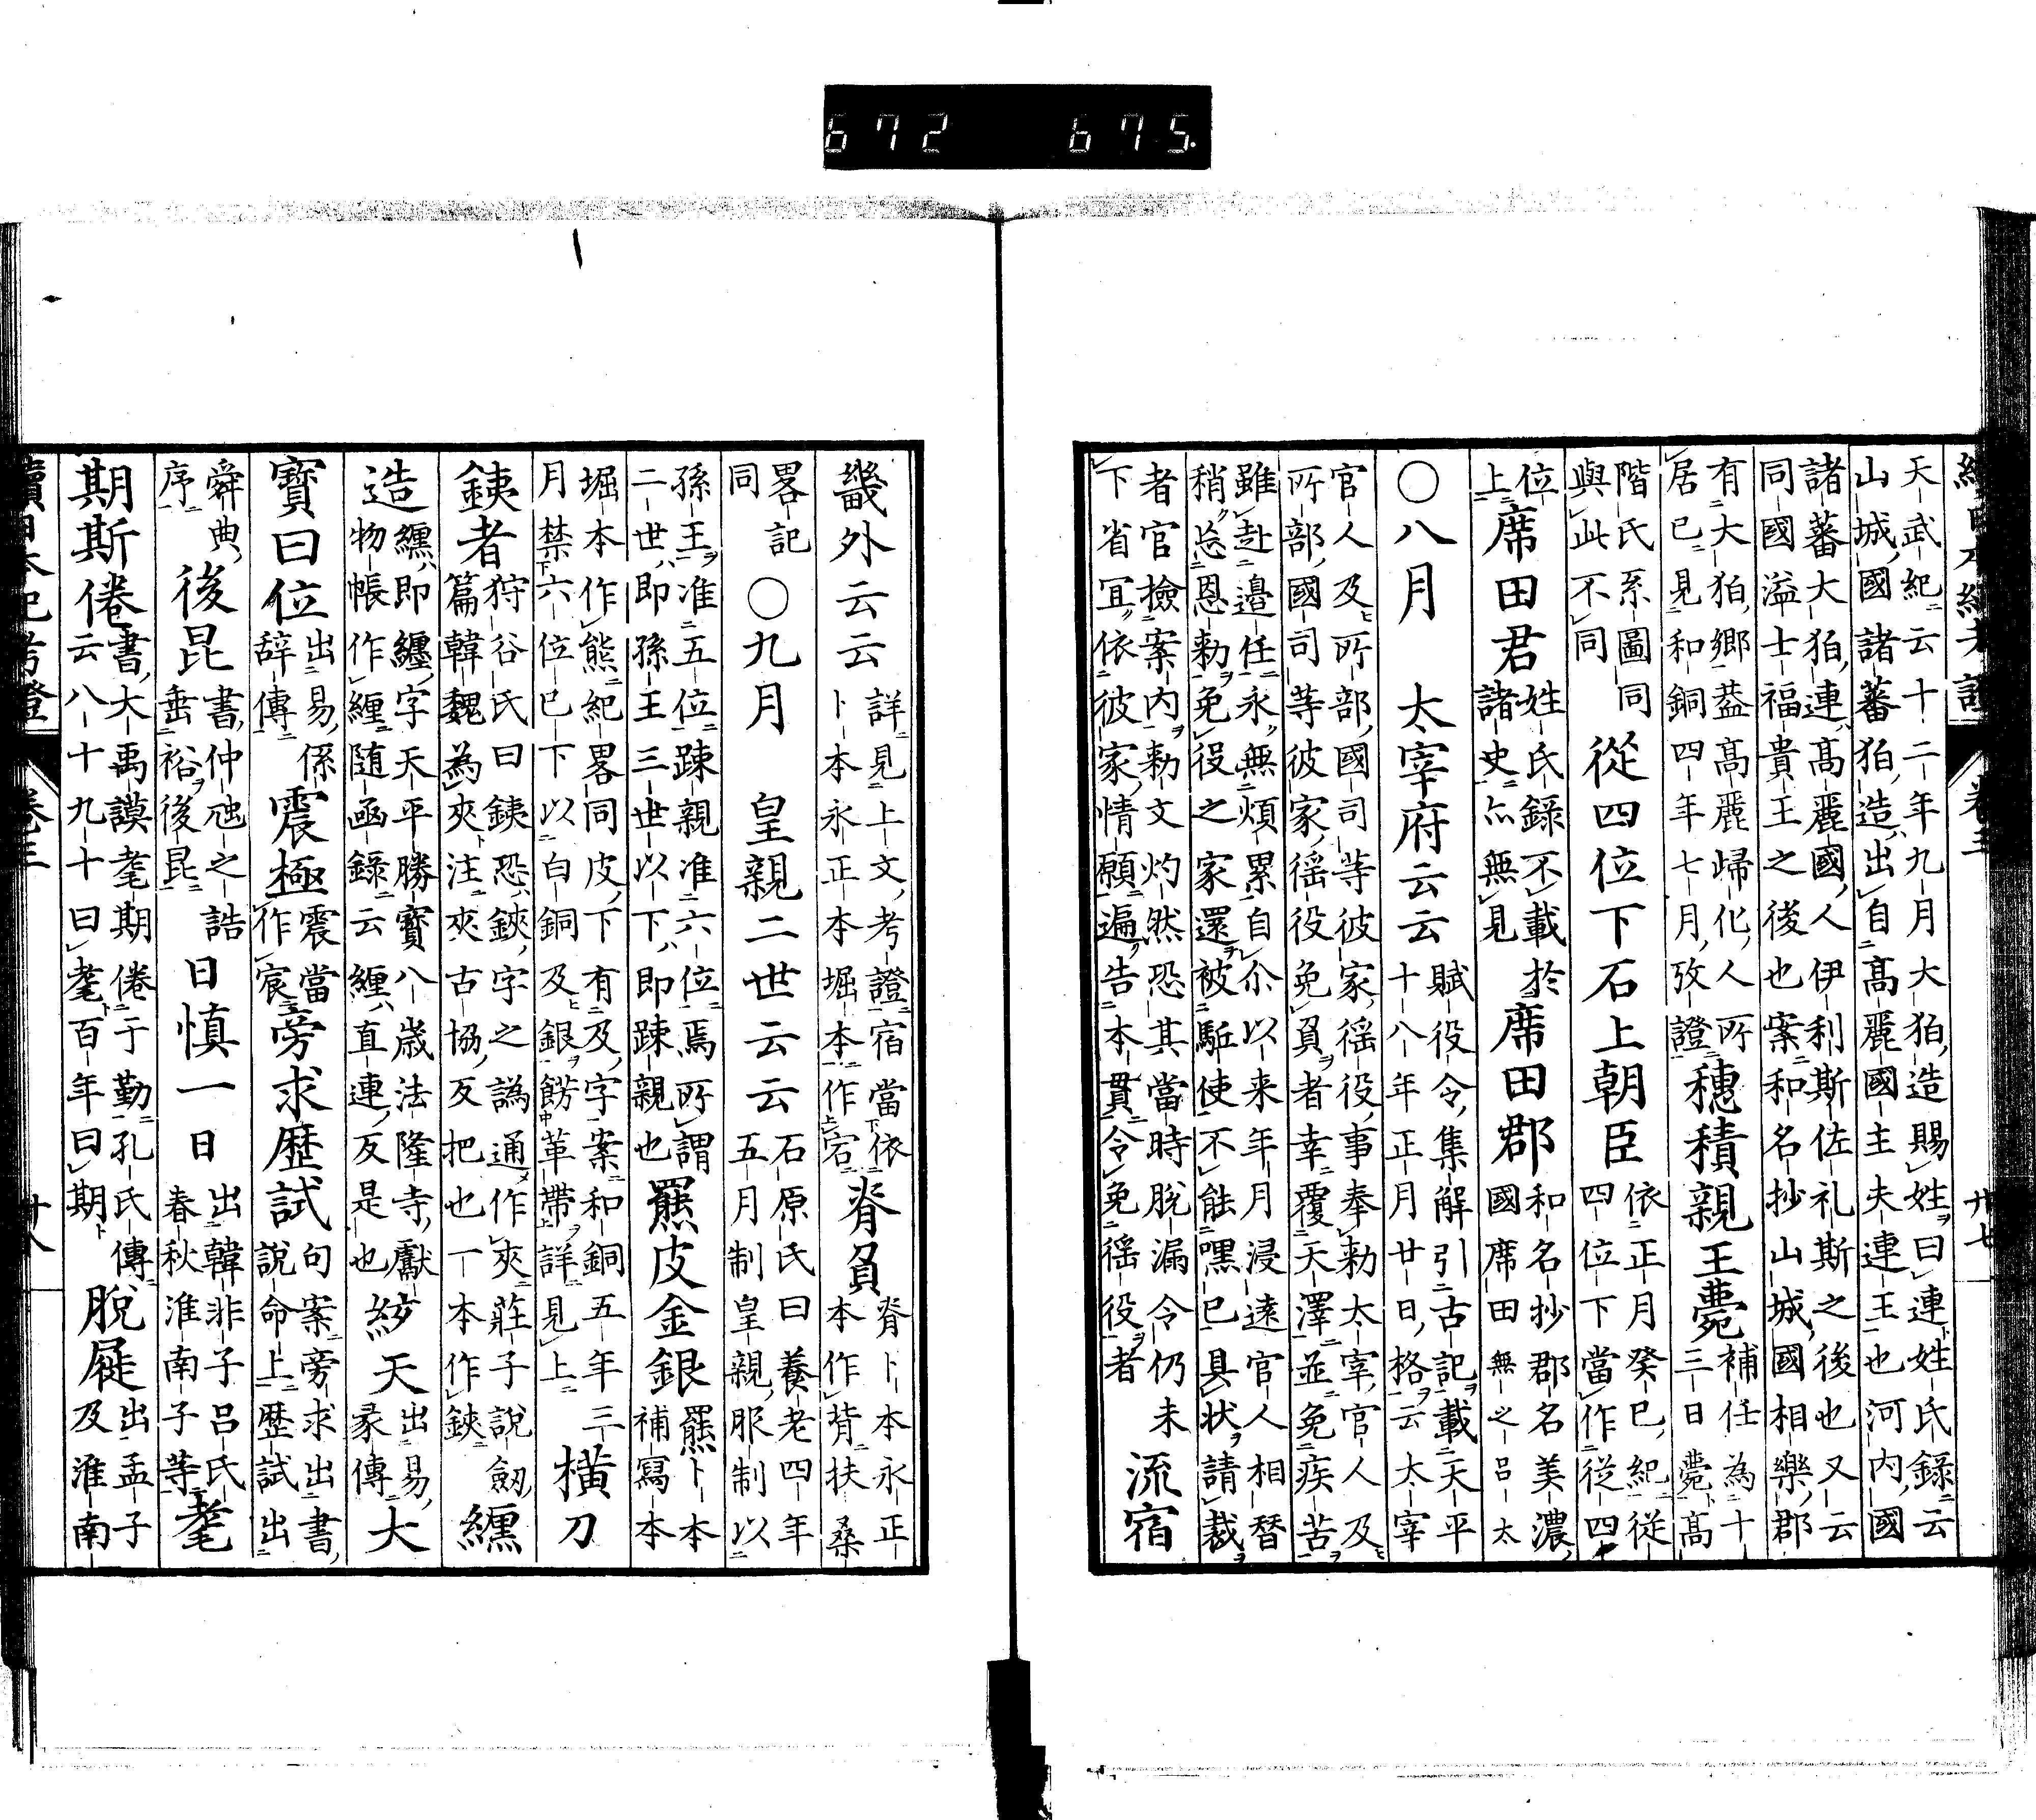 672 675
續日本紀考證 卷三 廿七
天武紀云十二年九月大狛造賜姓曰連姓氏録云
山城國諸蕃狛造出自高麗國主夫連王也河内國
諸蕃大狛連高麗國人伊利斯佐礼斯之後也又云
同國溢士福貴王之後也案和名抄山城國相樂郡
有大狛鄉蓋高麗歸化人所
居已見和銅四年七月攷證
穗積親王薨
補任為十
三日薨高
階氏系圖同
與此不同
從四位下石上朝臣
依正月癸巳紀從
四位下當作從四
位
上
席田君
姓氏録不載於
諸史亦無見
席田郡
和名抄郡名美濃
國席田無之呂太
〇八月 太宰府云云
賦役令集解引古記載天平
十八年正月廿日格云太宰
官人及所部國司等彼家徭役事奉勅太宰官人及
所部國司等彼家徭役免負者幸覆天澤並免疾苦
雖赴邉任永無煩累自尒以来年月浸遠官人相替
稍忘恩勅免役之家還被駈使不能嘿已具状請裁
者官檢案内勅文灼然恐其當時脱漏令仍未
下省冝依彼家情願遍告本貫令免徭役者
流宿
畿外云云
詳見上文考證宿當依
卜本永正本堀本作宕
脊負
脊卜本永正
本作背扶桑
畧記
同
〇九月 皇親二世云云
石原氏曰養老四年
五月制皇親服制以
孫王准五位踈親准六位焉所謂
二世即孫王三世以下即踈親也
羆皮金銀
羆卜本
補寫本
堀本作熊紀畧同皮下有及字案和銅五年三
月禁六位已下以白銅及銀餝革帶詳見上
横刀
鋏者
狩谷氏曰鋏恐鋏字之譌通作夾莊子說劒
篇韓魏為夾注夾古協反把也一本作鋏
纏
造
纏即纏字天平勝寶八歳法隆寺獻
物帳作緾随函錄云緾直連反是也
紗 天
出易
彖傳
大
寳曰位
出易係
辞傳
震極
震當
作宸
旁求歴試
句案旁求出書
說命上歴試出
舜典
序
後昆
書仲虺之誥
垂裕後昆
日慎一日
出韓非子呂氏
春秋淮南子等
耄
期斯倦
書大禹謨耄期倦于勤孔氏傳
云八十九十曰耄百年曰期
脱屣
出孟子
及淮南
續日本紀考證 卷三 廿八